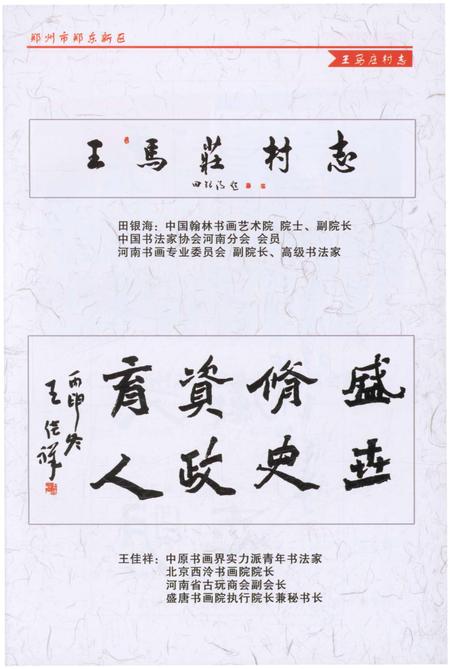 郑州市郑东新区
王马庄村志
王馬莊村志
田银海 题
田银海：中国翰林书画艺术院 院士、副院长
中国书法家协会河南分会 会员
河南书画专业委员会 副院长、高级书法家
盛世
脩史
資政
育人
丙申冬
王佳祥
王佳祥：中原书画界实力派青年书法家
北京西泠书画院院长
河南省古玩商会副会长
盛唐书画院执行院长兼秘书长